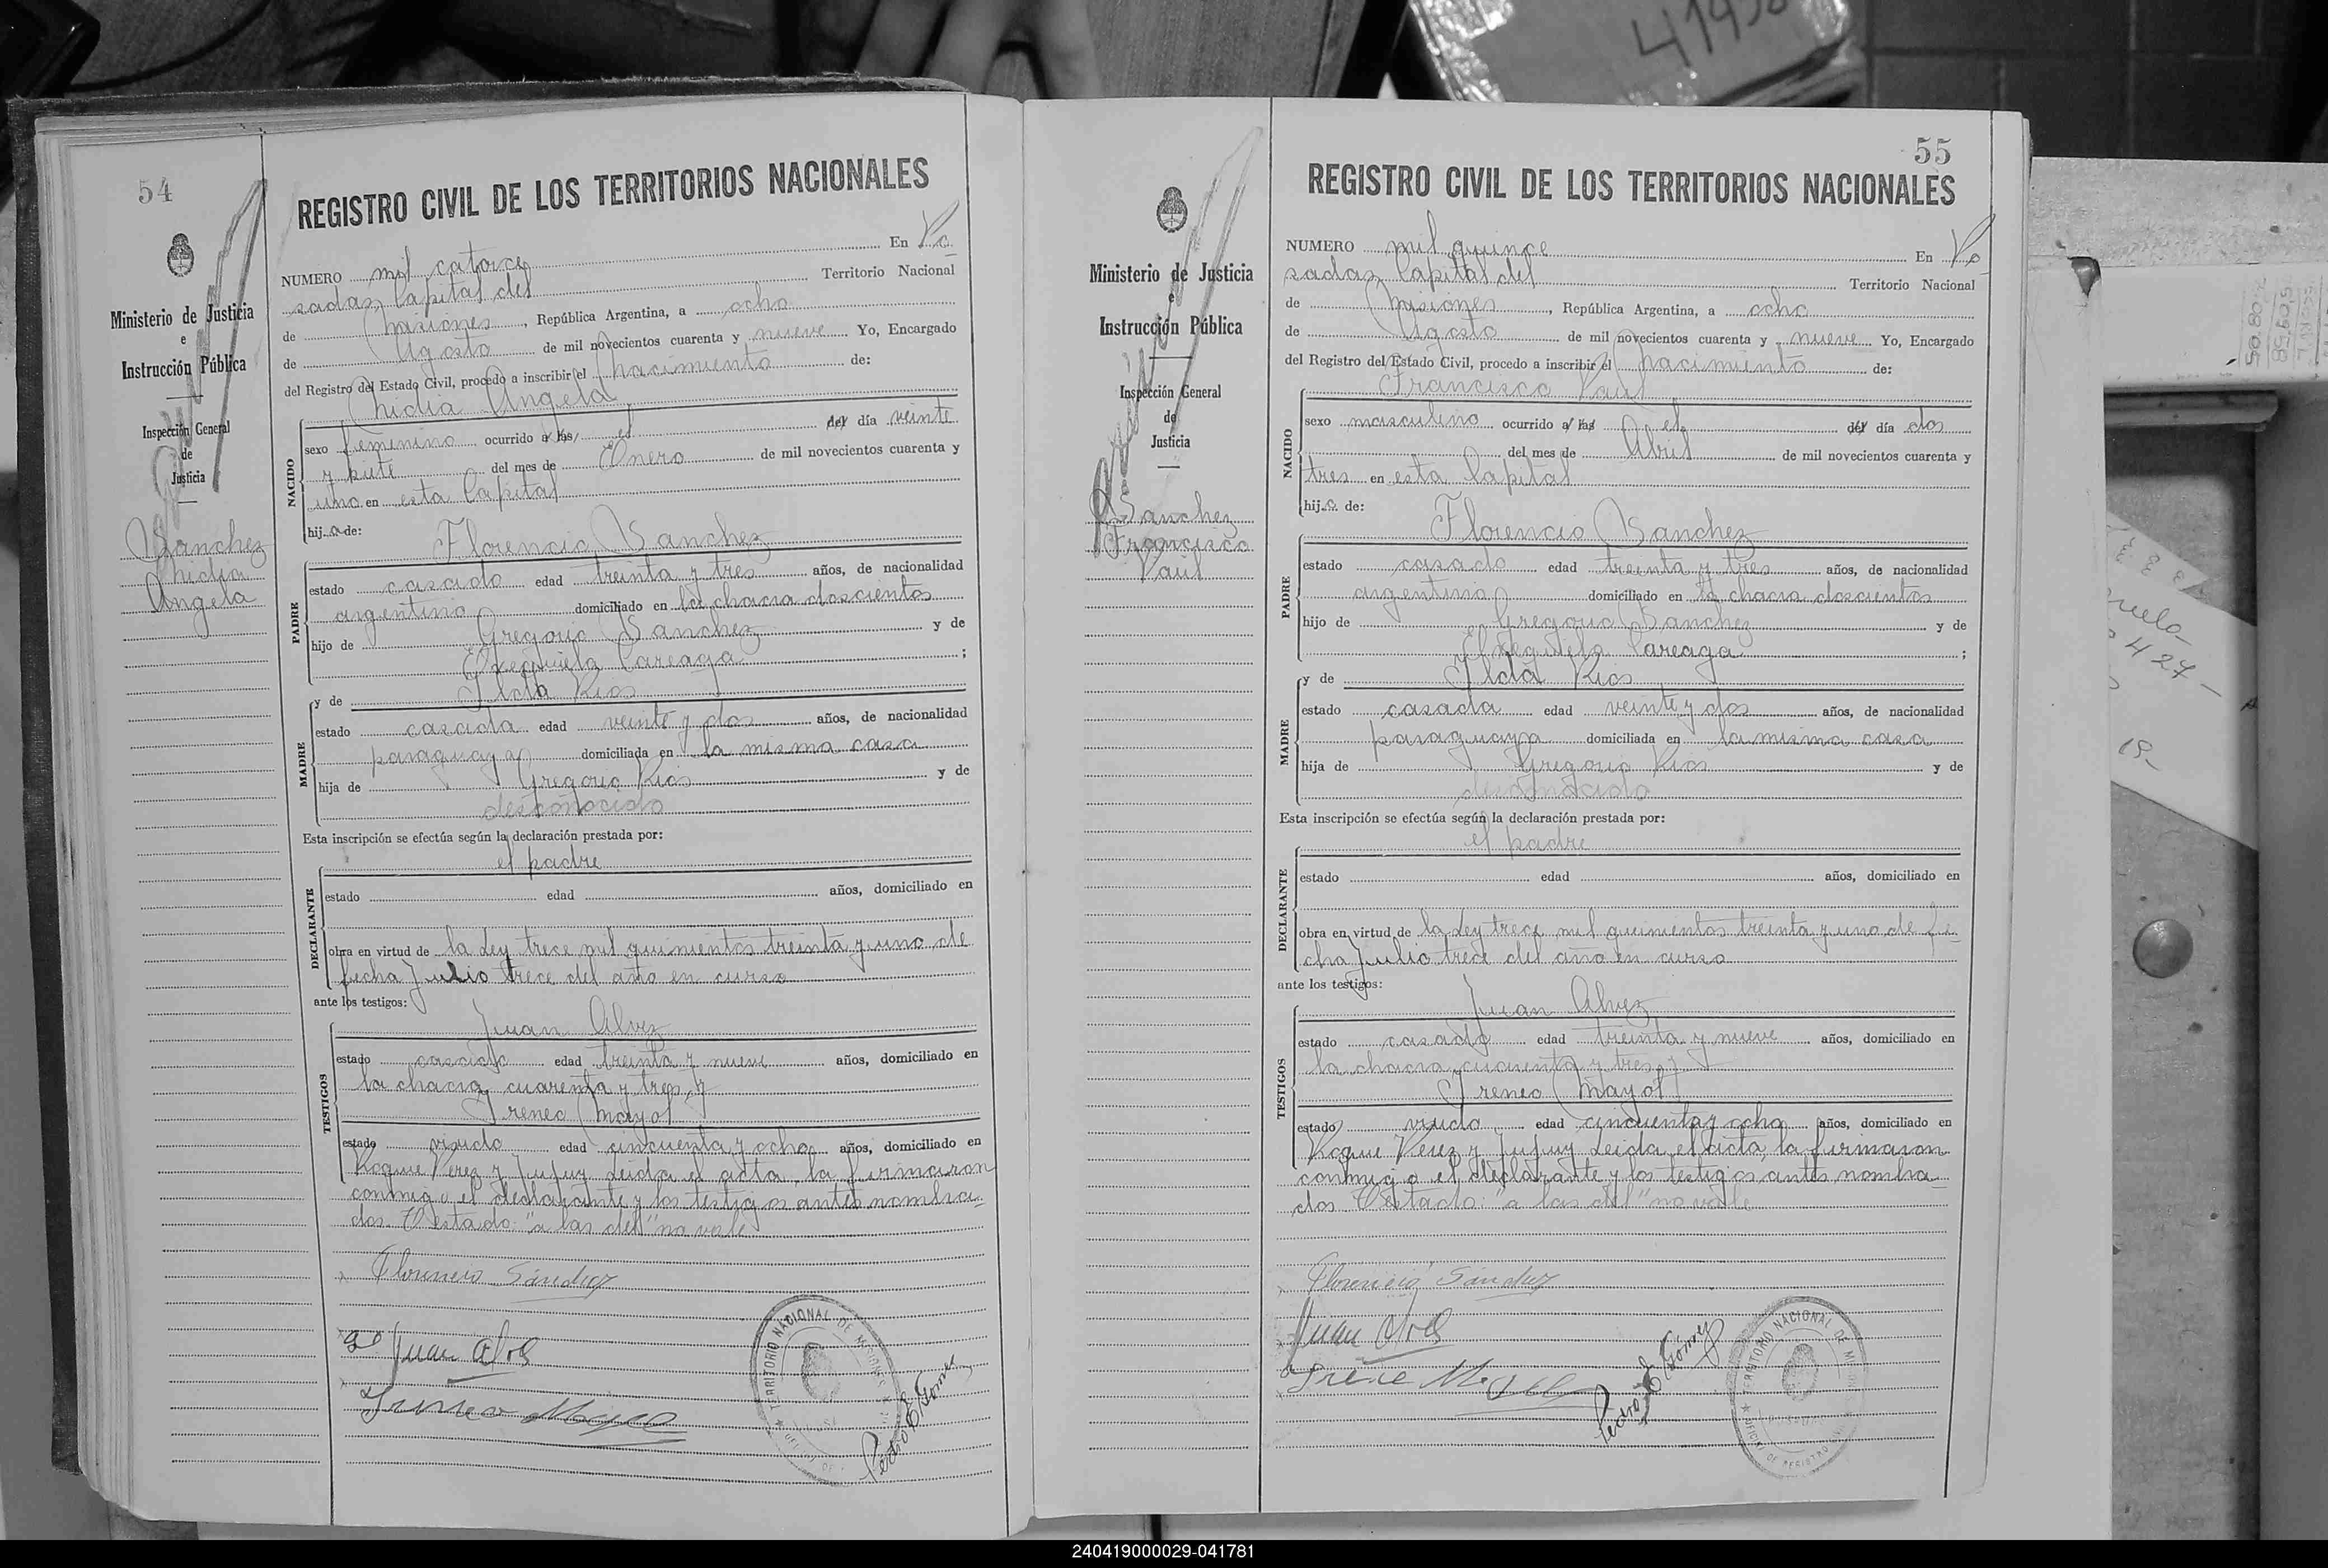 41498
54
Ministerio de Justicia
e
Instrucción Pública
Inspección General
de
Justicia
Sanchez
Nidia
Angela
REGISTRO CIVIL DE LOS TERRITORIOS NACIONALES
NUMERO mil catorce En Po
sadas, Capital del Territorio Nacional
de Misiones, República Argentina, a ocho
de Agosto de mil novecientos cuarenta y nueve Yo, Encargado
del Registro del Estado Civil, procedo a inscribir el nacimiento de:
Nidia Angela
NACIDO
sexo femenino ocurrido a las el del día veinte
y siete del mes de Enero de mil novecientos cuarenta y
uno en esta Capital
hija de:
Florencio Sanchez
PADRE
estado casado edad treinta y tres años, de nacionalidad
argentina domiciliado en la chacra doscientos
hijo de Gregorio Sanchez y de
Exequiela Careaga ;
y de Ilda Rios
MADRE
estado casada edad veinte y dos años, de nacionalidad
paraguaya domiciliada en la misma casa
hija de Gregorio Rios y de
desconocida
Esta inscripción se efectúa según la declaración prestada por:
el padre
DECLARANTE
estado edad años, domiciliado en
obra en virtud de la Ley trece mil quinientos treinta y uno de
fecha Julio trece del año en curso
ante los testigos:
Juan Alvez
TESTIGOS
estado casado edad treinta y nueve años, domiciliado en
la chacra cuarenta y tres, y
Ireneo Mayol
estado viudo edad cincuenta y ocho años, domiciliado en
Roque Perez y Jujuy Leida el acta, la firmaron
conmigo el declarante y los testigos antes nombra-
dos. Testado: "a las del" no vale
Florencio Sánchez
Juan Alves
Ireneo Mayol
Pedro E Gómez
TERRITORIO NACIONAL DE MISIONES
55
Ministerio de Justicia
e
Instrucción Pública
Inspección General
de
Justicia
Sanchez
Francisco
Raúl
REGISTRO CIVIL DE LOS TERRITORIOS NACIONALES
NUMERO mil quince En Po
sadas, Capital del Territorio Nacional
de Misiones, República Argentina, a ocho
de Agosto de mil novecientos cuarenta y nueve Yo, Encargado
del Registro del Estado Civil, procedo a inscribir el nacimiento de:
Francisco Raúl
NACIDO
sexo masculino ocurrido a las el del día dos
del mes de Abril de mil novecientos cuarenta y
tres en esta Capital
hijo de:
Florencio Sanchez
PADRE
estado casado edad treinta y tres años, de nacionalidad
argentina domiciliado en la chacra doscientos
hijo de Gregorio Sanchez y de
Exequiela Careaga ;
y de Ilda Rios
MADRE
estado casada edad veinte y dos años, de nacionalidad
paraguaya domiciliada en la misma casa
hija de Gregorio Rios y de
desconocida
Esta inscripción se efectúa según la declaración prestada por:
el padre
DECLARANTE
estado edad años, domiciliado en
obra en virtud de la Ley trece mil quinientos treinta y uno de fe-
cha Julio trece del año en curso
ante los testigos:
Juan Alvez
TESTIGOS
estado casado edad treinta y nueve años, domiciliado en
la chacra cuarenta y tres, y
Ireneo Mayol
estado viudo edad cincuenta y ocho años, domiciliado en
Roque Perez y Jujuy Leida el acta, la firmaron
conmigo el declarante y los testigos antes nombra-
dos Testado: "a las del" no vale
Florencio Sánchez
Juan Alves
Pedro E Gómez
TERRITORIO NACIONAL DE
240419000029-041781